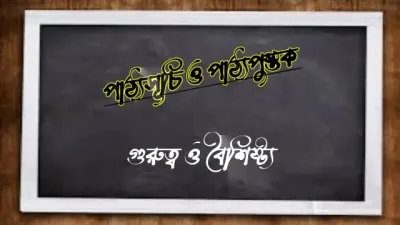 পাঠ্যসূচি ও পাঠ্যপুস্তক
গুরুত্ব ও বৈশিষ্ট্য